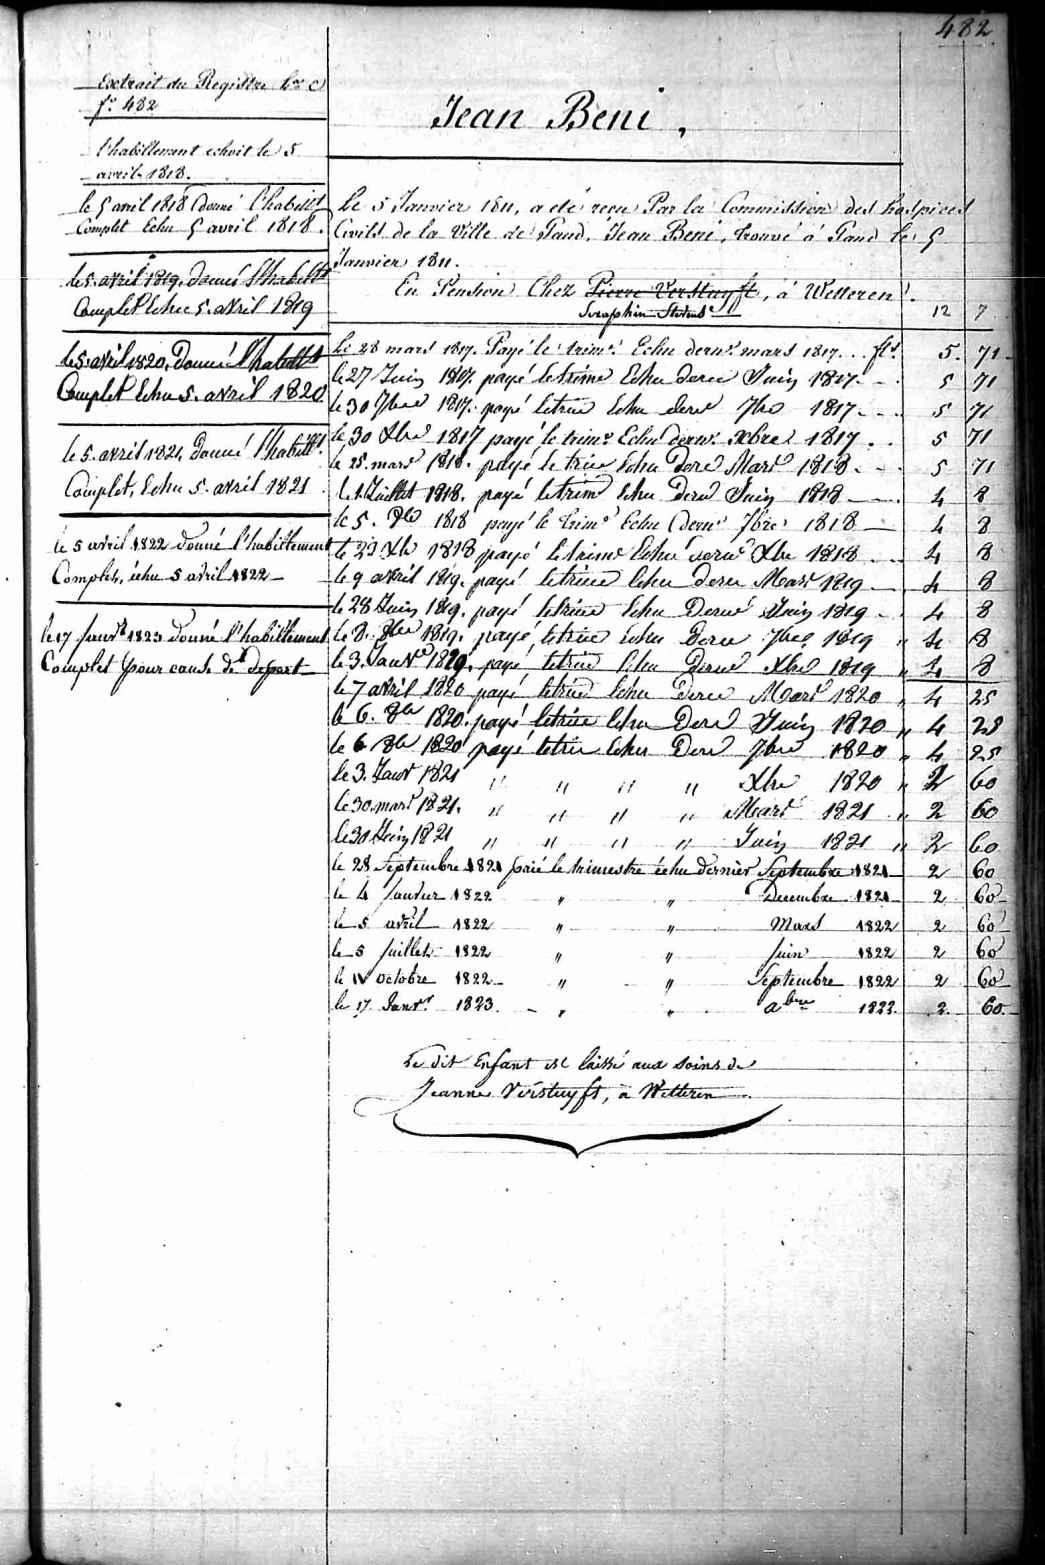 482
Extrait du Registre
f.° 482
l'habillement echoit le 5
avril 1818.
le 5 avril 1818 donné l'habillt
Complet Echu 5 avril 1818.
le 5. avril 1819. donné l'habillt
Complet Echu 5. avril 1819
le 5. avril 1820. Donné l'habillt
Complet Echu 5. avril 1820
le 5. avril 1821. Donné l'habillt.
Complet, Echu 5. avril 1821
le 5 avril 1822 donné l'habillement
Complet, échu 5 avril 1822
le 17 Janvr 1823 donné l'habillement
Complet pour cause de depart
Jean Beni,
Le 5 Janvier 1811, a été reçu Par la Commission des hospices
Civils de la Ville de Gand, Jean Beni, trouvé á Gand le 5
Janvier 1811.
En Pension Chez Pierre Verstuyft, á Wetteren.
Seraphin 12 7
Le 28 mars 1817. Payé le trims. Echu dernr. mars 1817... fls. 5. 71
le 27 Juin 1817. payé le trime Echu derne Juin 1817. - - 5 71
le 30 7bre 1817. payé le trim Echu derne 7bre 1817 - - - 5 71
le 30 Xbre 1817 payé le trime Echu dernr. xbre 1817 . . 5 71
le 25. mars 1818. payé le trim Echu dern Mars 1818 - . 5 71
le 1. Juillet 1818. payé le trim Echu dern Juin 1818 4 8
le 5. 8bre 1818 payé le trime Echu dern 7bre 1818 4 8
le 23 Xbre 1818 payé le trime Echu derne Xbre 1818 4 8
le 9 avril 1819. payé le trime Echu dern Mars 1819 4 8
le 28 Juin 1819. payé le trime Echu Derne Juin 1819 4 8
le 8. 8bre 1819. payé le trim echu Dern 7bre 1819 " 4 8
le 3. Janve 1820. payé le trim Echu Derne Xbre 1819 " 4 8
le 7 avril 1820 payé le trim Echu Dern Mars 1820 " 4 25
le 6. 8bre 1820. payé le trim Echu Dern Juin 1820 " 4 25
le 6 8bre 1820 payé le trim Echu Dern 7bre 1820 " 4 25
le 3. Janvr 1821 " " " " Xbre 1820 " 2 60
le 30. mars 1821. " " " " Mars 1821 " 2 60
le 30 Juin 1821 " " " " Juin 1821 " 2 60
le 28 Septembre 1821 paié le trimestre échu dernier Septembre 1821 2 60
le 4 Janvier 1822 " " Decembre 1821 2 60
le 5 avril 1822 " " Mars 1822 2 60
le 5 Juillet 1822 " " Juin 1822 2 60
le octobre 1822 " " Septembre 1822 2 60
le 17 Janvr. 1823. " " 1822. 2 60
Le dit Enfant est laissé aux soins de
Jeanne Verstuyft, á Wetteren